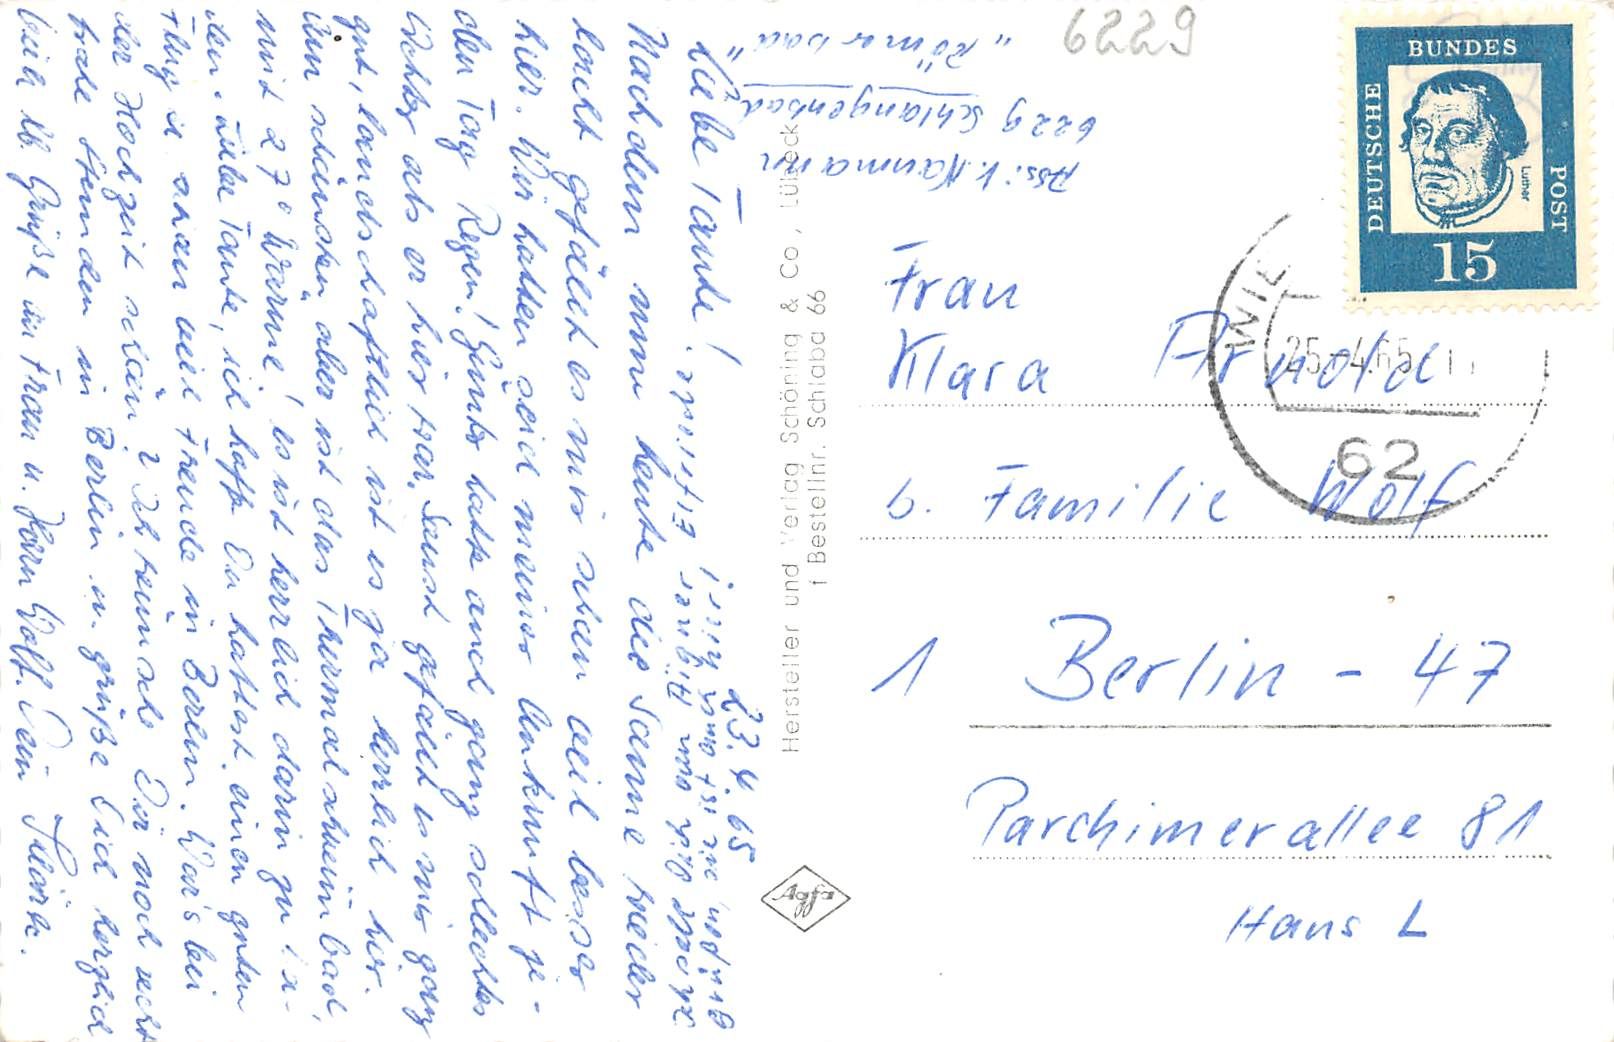 6229
DEUTSCHE BUNDES POST
Luther
15
WIE
25.-4.65
62
Abs: V. Naumann
6229 Schlangenbad
„Römerbad"
Frau
Klara Arnold
b. Familie Wolf
1 Berlin - 47
Parchimerallee 81
Haus L
Hersteller und Verlag Schöning & Co., Lübeck
f Bestellnr. Schlaba 66
Agfa
23.4.65
Liebe Tante!
Nachdem nun heute die Sonne wieder
lacht gefällt es mir schon viel besser
hier. Wir hatten seid meiner Ankunft je-
den Tag Regen! hatte auch ganz schlechtes
als er hier war. Sonst gefällt es mir ganz
gut, landschaftlich ist es ja herrlich hier.
Am schönsten aber ist das Thermalschwimmbad,
mit 27° Wärme! es ist herrlich darin zu
Liebe Tante, ich hoffe Du hattest einen guten
Flug u. schon viel Freude in Berlin. War's bei
der Hochzeit schön? Ich wünsche Dir noch recht
frohe Stunden in Berlin u. grüße Dich herzlich
viele lb. Grüße an Frau u. Herrn Wolf. Dein